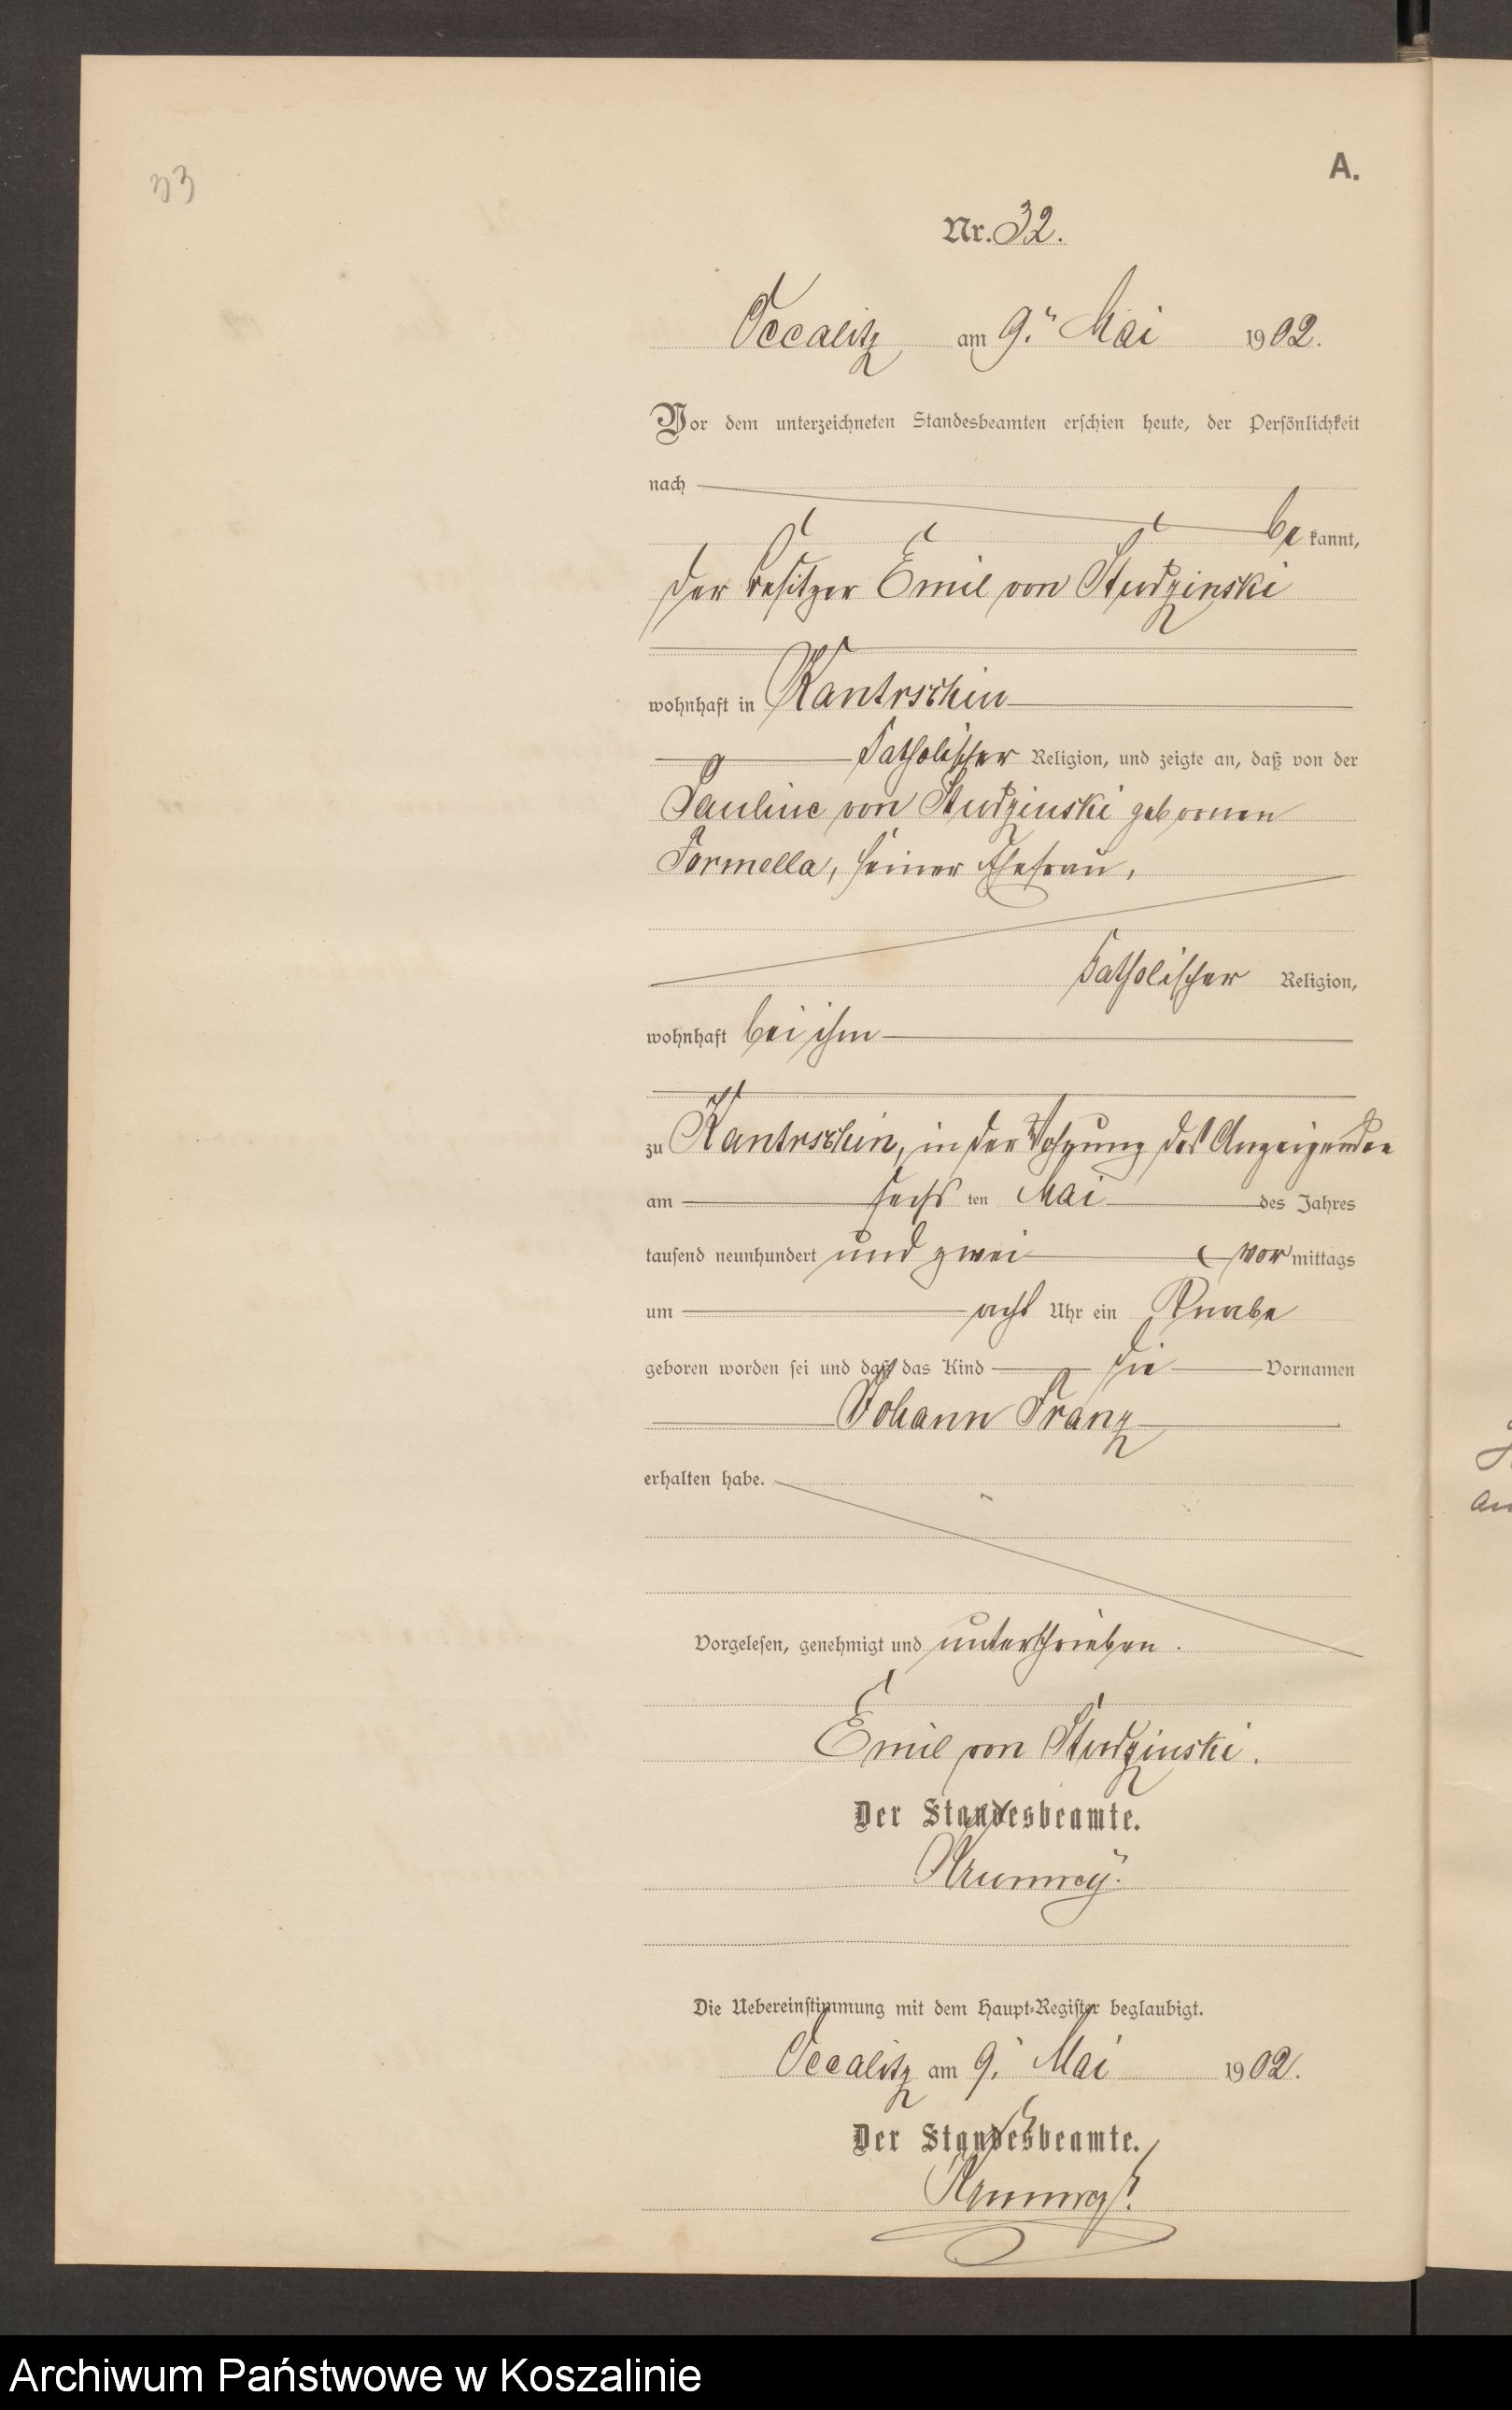 33
A.
Nr. 32.
Occalitz am 9. Mai 1902.
Vor dem unterzeichneten Standesbeamten erschien heute, der Persönlichkeit
nach
be kannt,
der Besitzer Emil von Studzinski
wohnhaft in Kantrschin
katholischer Religion, und zeigte an, daß von der
Pauline von Studzinski gebornen
Formella, seiner Ehefrau,
katholischer Religion,
wohnhaft bei ihm
zu Kantrschin, in der Wohnung des Anzeigenden
am sechs ten Mai des Jahres
tausend neunhundert und zwei vor mittags
um acht Uhr ein Knabe
geboren worden sei und daß das Kind die Vornamen
Johann Franz
erhalten habe.
Vorgelesen, genehmigt und unterschrieben.
Emil von Studzinski.
Der Standesbeamte.
Krumrey.
Die Uebereinstimmung mit dem Haupt-Register beglaubigt.
Occalitz am 9. Mai 1902.
Der Standesbeamte.
Krumrey.
Archiwum Państwowe w Koszalinie